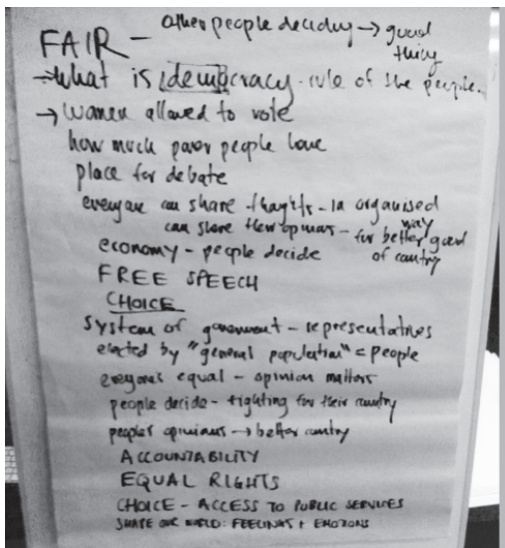 FAIR - other people deciding → good
thing
→ What is democracy - rule of the people.
→ Women allowed to vote
how much power people have
place for debate
everyone can share thoughts - in organised
way
can share their opinions - for better good
of country
economy - people decide
FREE SPEECH
CHOICE
system of government - representatives
elected by "general population" = people
everyone's equal - opinion matters
people decide - fighting for their country
people's opinions → better country
ACCOUNTABILITY
EQUAL RIGHTS
CHOICE - ACCESS TO PUBLIC SERVICES
SHARE OUR WORLD: FEELINGS + EMOTIONS